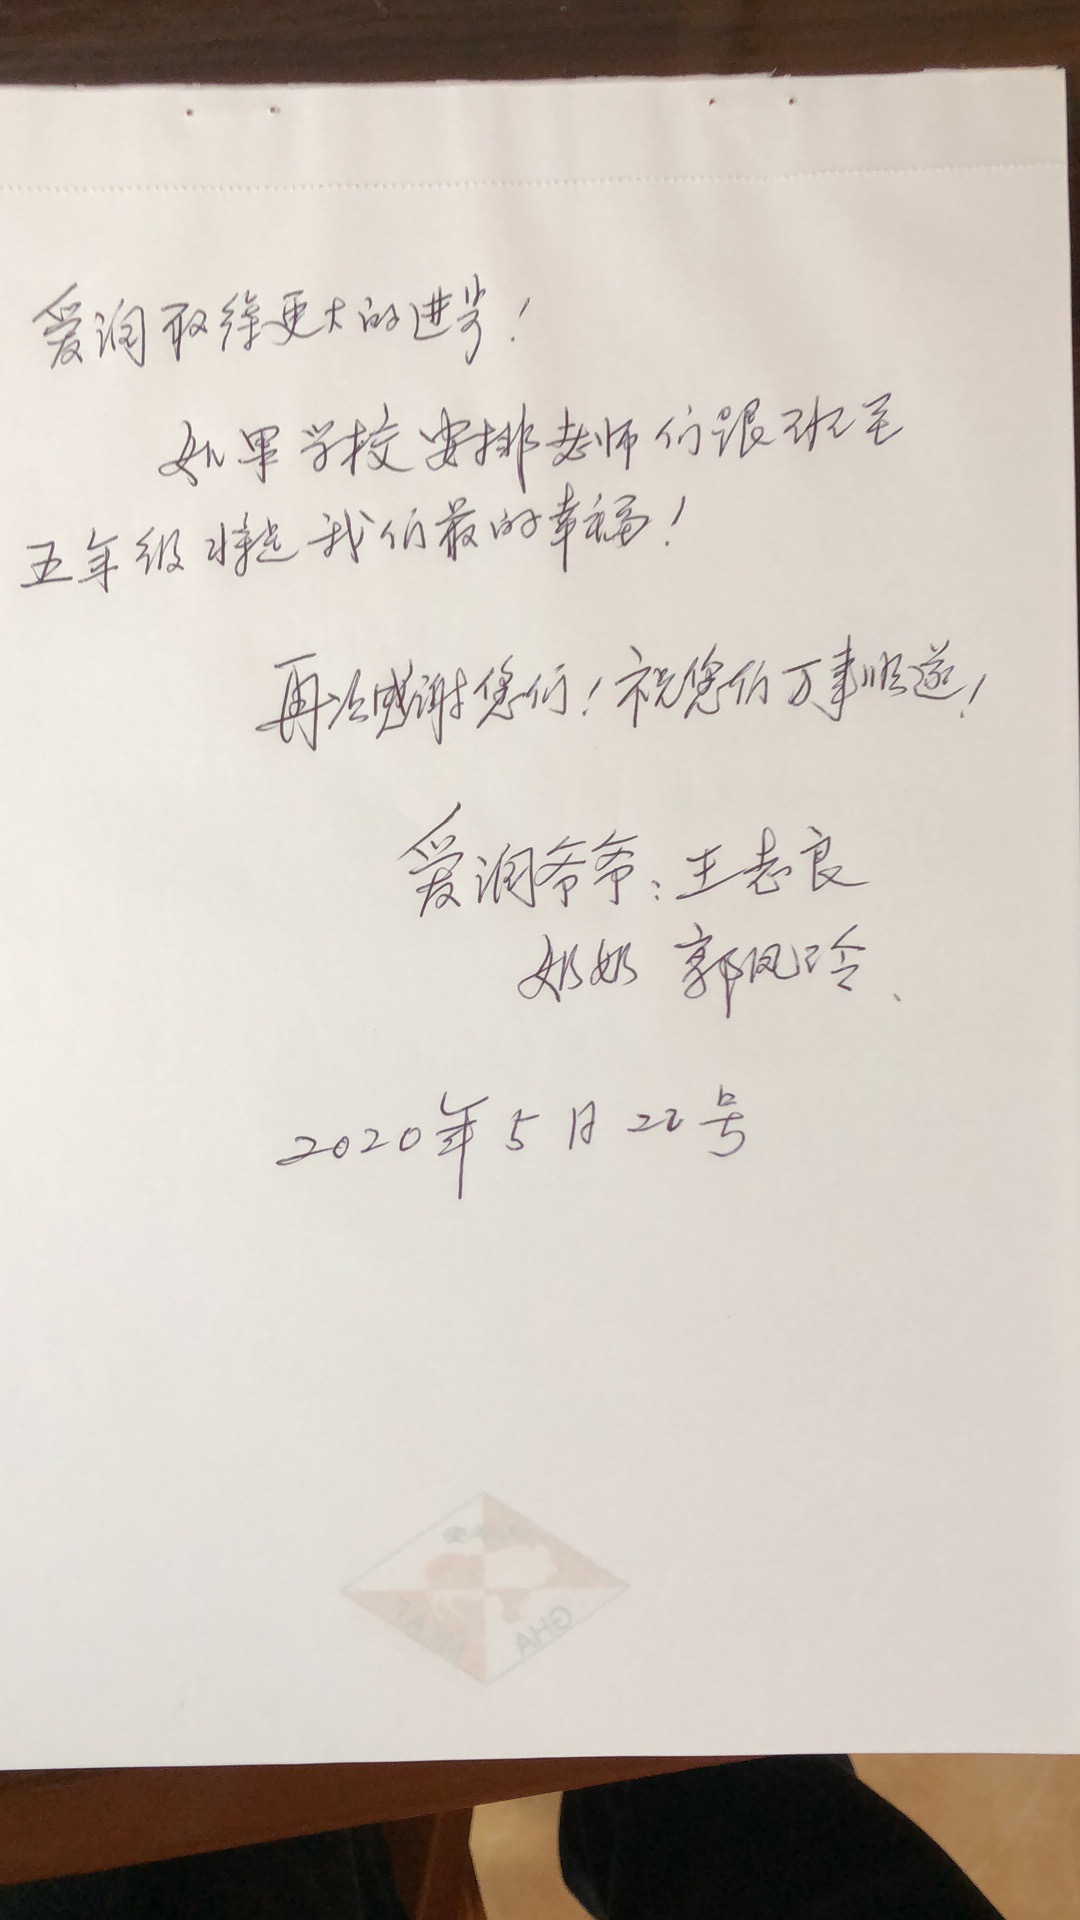 爱润取得更大的进步！
如果学校安排老师们跟班至
五年级将是我们最的幸福！
再次感谢您们！祝您们万事顺遂！
爱润爷爷：王志良
奶奶 郭凤玲、
2020年5月22号
GHA